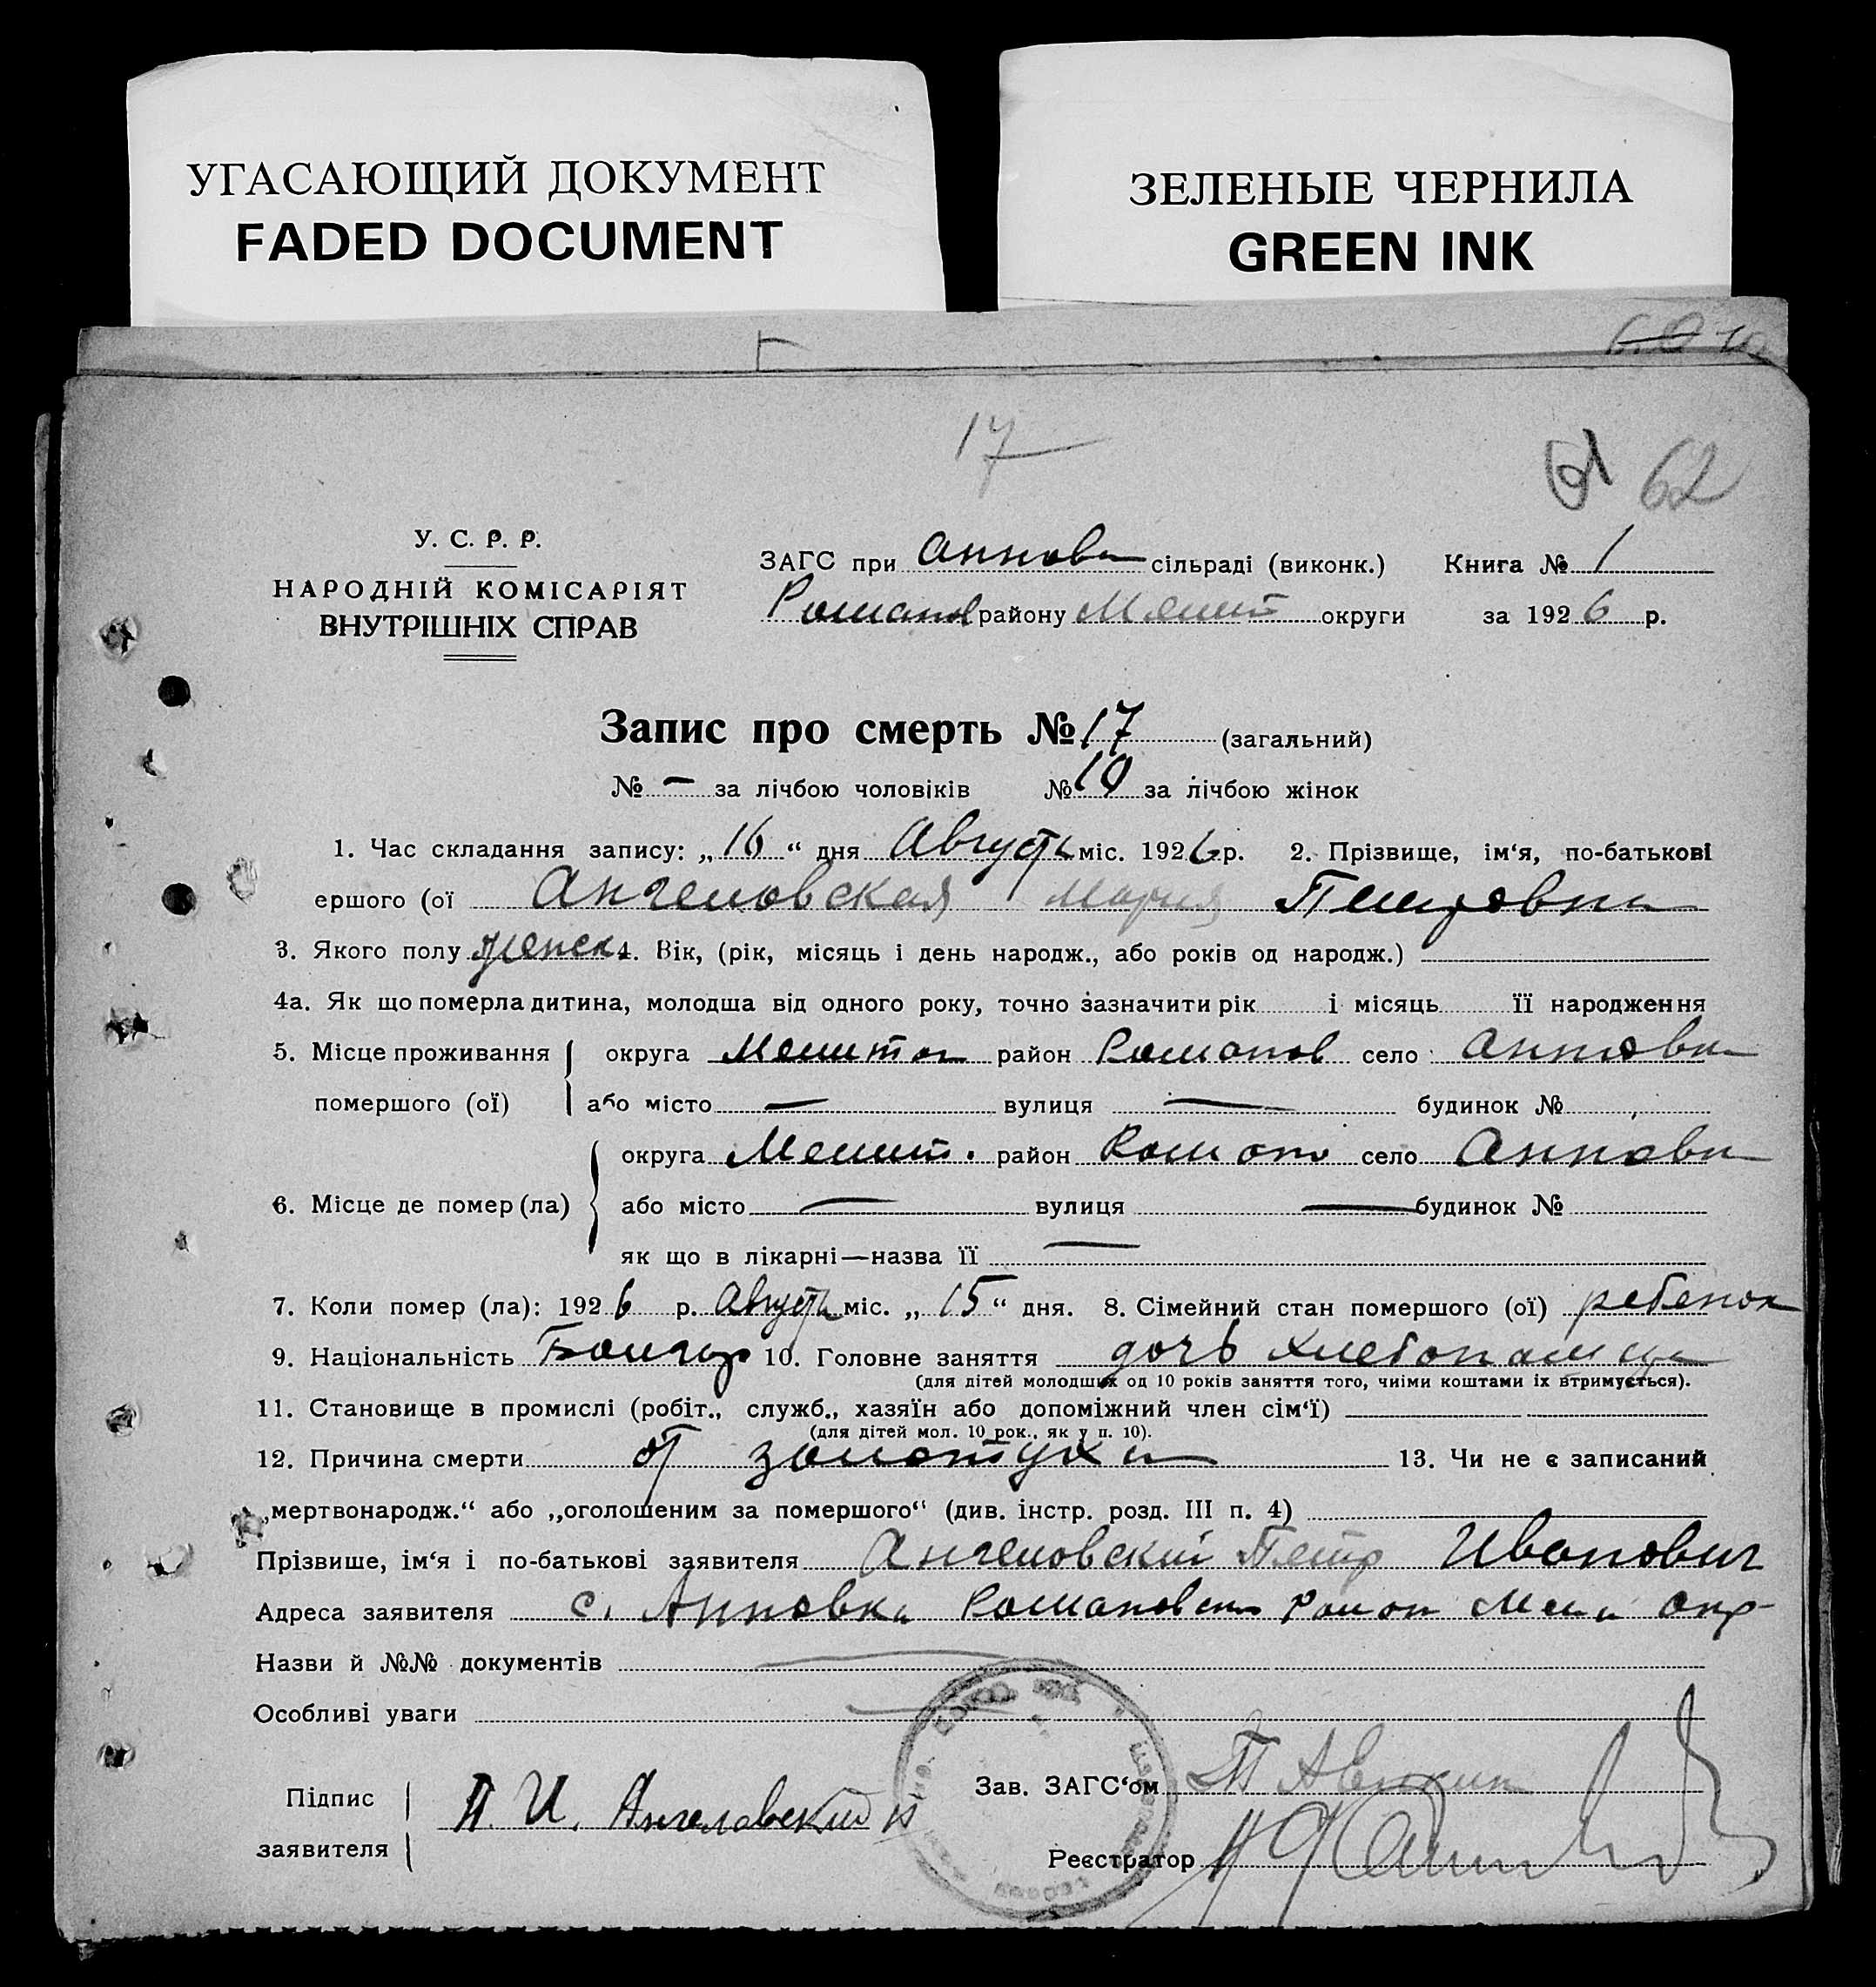 УГАСАЮЩИЙ ДОКУМЕНТ
FADED DOCUMENT
ЗЕЛЕНЫЕ ЧЕРНИЛА
GREEN INK
17
61 62
У. С. Р. Р.
НАРОДНІЙ КОМІСАРІЯТ
ВНУТРІШНІХ СПРАВ
ЗАГС при Анновк сільраді (виконк.) Книга № 1
Романов району Мелит округи за 1926 р.
Запис про смерть № 17 (загальний)
№ — за лічбою чоловіків № 10 за лічбою жінок
1. Час складання запису: „16“ дня Августа міс. 1926 р. 2. Прізвище, ім‘я, по-батькові
ершого (ої Ангеловская Мария Петровна
3. Якого полу женск 4. Вік, (рік, місяць і день народж., або років од народж.)
4а. Як що померла дитина, молодша від одного року, точно зазначити рік і місяць її народження
5. Місце проживання округа Мелитоп район Романов село Анновка
помершого (ої) або місто — вулиця — будинок №
округа Мелит. район Роман село Анновка
6. Місце де помер (ла) або місто — вулиця — будинок №
як що в лікарні—назва її —
7. Коли помер (ла): 1926 р. Августа міс. „15“ дня. 8. Сімейний стан помершого (ої) ребенок
9. Національність Болгар 10. Головне заняття дочь хлебопашца
(для дітей молодших од 10 років заняття того, чиїми коштами їх втримується).
11. Становище в промислі (робіт., служб., хазяїн або допоміжний член сім‘ї)
(для дітей мол. 10 рок., як у п. 10).
12. Причина смерти от золотухи 13. Чи не є записаний
„мертвонародж.“ або „оголошеним за помершого“ (див. інстр. розд. III п. 4)
Прізвище, ім‘я і по-батькові заявителя Ангеловский Петр Иванович
Адреса заявителя с. Анновка Романовск район Мели окр
Назви й №№ документів
Особливі уваги
Підпис
заявителя
П. И. Ангеловский
Зав. ЗАГС‘ом
Реєстратор